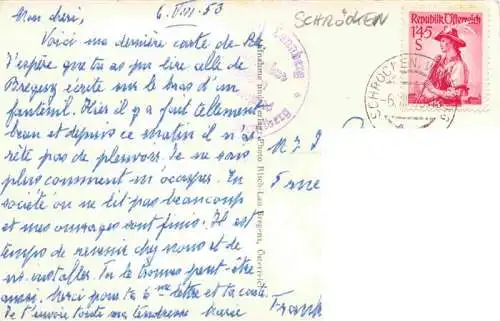 Mon chéri,
6. VIII. 53
SCHRÖCKEN
Republik Österreich
145
S
SCHRÖCKEN
Voici ma dernière carte de Br
J'espère que tu as pu lire celle de
Bregenz écrite sur le bras d'un
fauteuil. Hier il y a fait tellement
beau et depuis ce matin il n'a
rête pas de pleuvoir. Je ne sais
plus comment m'occuper. En
société on ne lit pas beaucoup
et mes ouvrages sont finis. Il est
temps de revenir chez nous et de
s'y installer. Tu le trouves peut-être
aussi. Merci pour ta 6me lettre et ta carte.
Je t'envoie toute ma tendresse Marie
Aufnahme und Verlag: Photo Risch-Lau Bregenz, Österreich
M
Frank